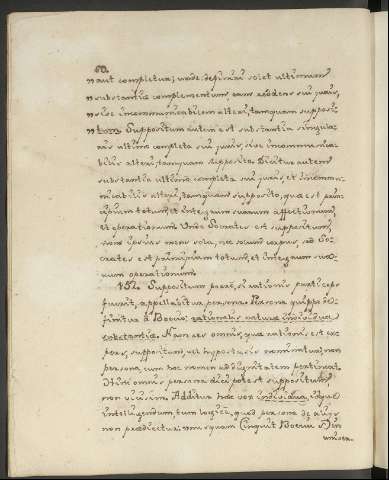 60.
„aut completur; unde definiri solet ultimum
„substantiæ complementum, eam reddens sui juris,
„sive incommunicabilem alteri, tamquam supposi-
„tum. Suppositum autem est substantia singula-
ris ultimo completa sui juris, sive incommunica-
bilis alteri, tamquam supposito. Dicitur autem
substantia ultimo completa sui juris, et incommu-
nicabilis alteri, tamquam supposito, quæ est prin-
cipium totum, et integrum suarum affectionum,
et operationum. Unde Socrates est suppositum,
non ipsius mens sola, nec solum corpus, sed So-
crates est principium totum, et integrum sua-
rum operationum.
182. Suppositum porro, si rationis particeps
fuerit, appellabitur persona. Persona quippe de-
finitur a Boetio: rationalis naturæ individua
substantia. Nam res omnis, quæ rationis est ex-
pers, suppositum, vel hypostasis nominatur, non
persona, cum hoc nomen ad dignitatem pertineat.
Hinc omnis persona dici potest suppositum,
non vicissim. Additur hæc vox individua, idque
intelligendum, tum logicè, quod persona de aliquo
non prædicetur: nusquam (inquit Boetius) in
univer-